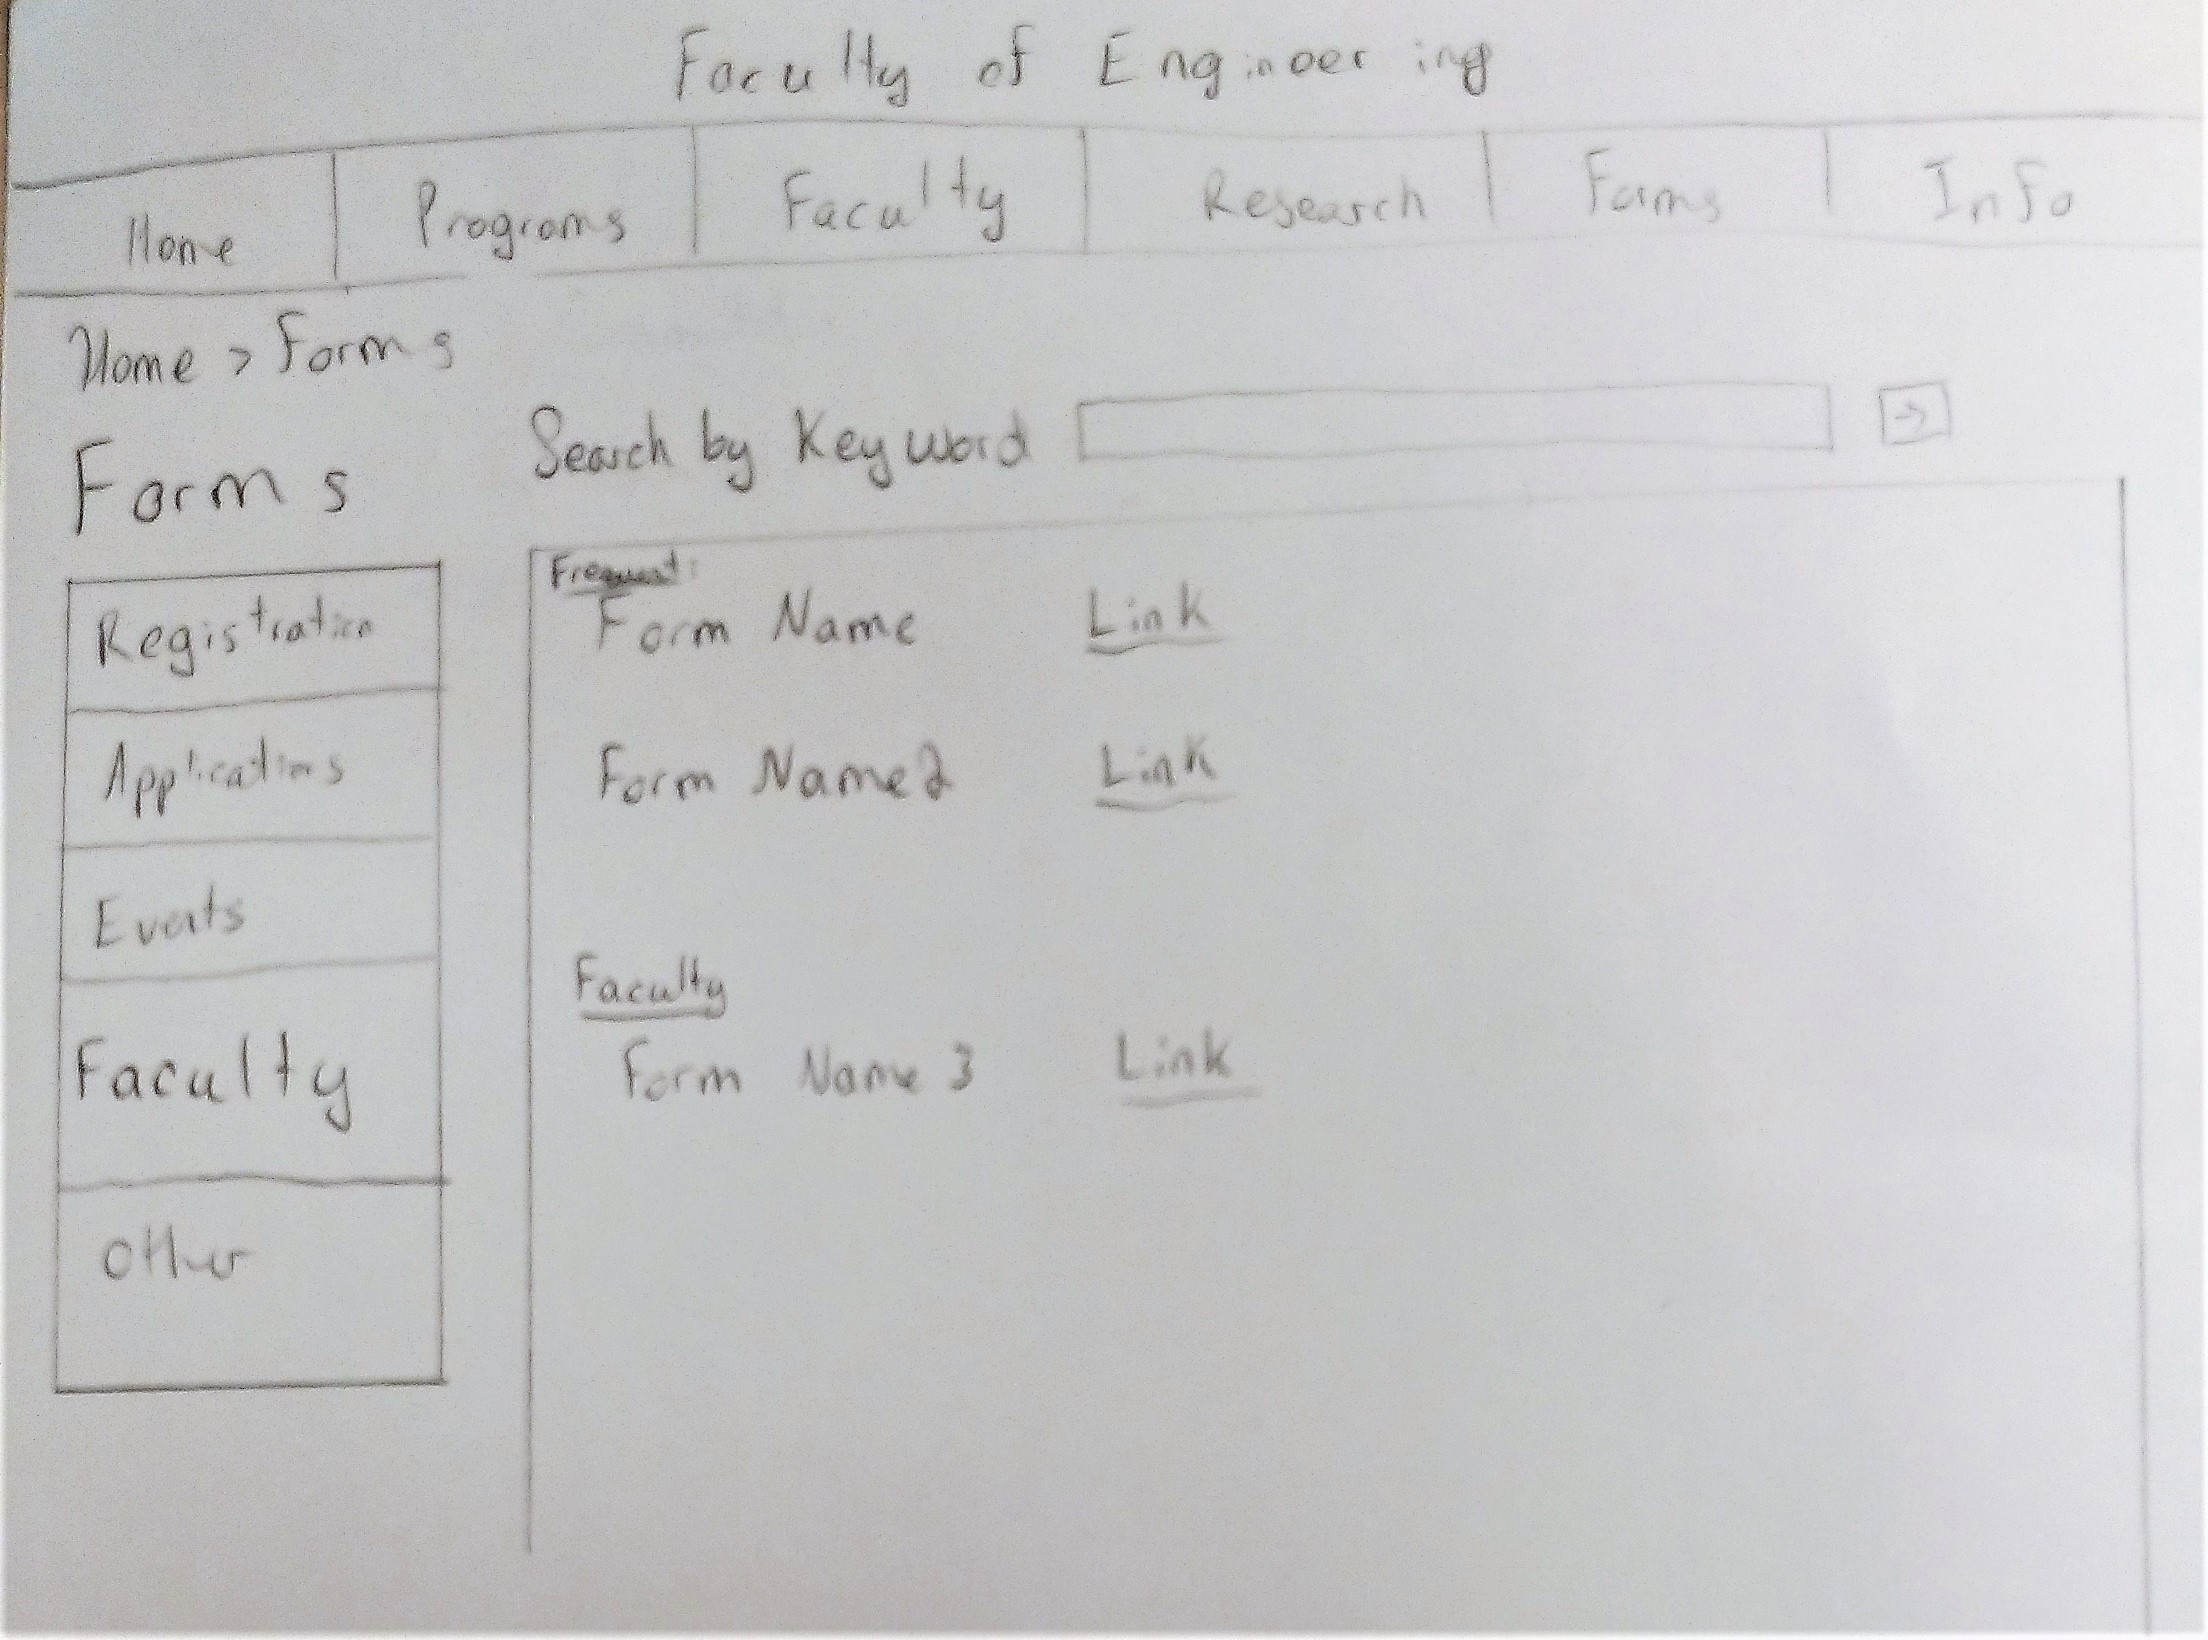 Faculty of Engineering
Home Programs Faculty Research Forms Info
Home > Forms
Forms
Search by Keyword →
Registration
Applications
Events
Faculty
Other
Frequent:
Form Name Link
Form Name 2 Link
Faculty
Form Name 3 Link